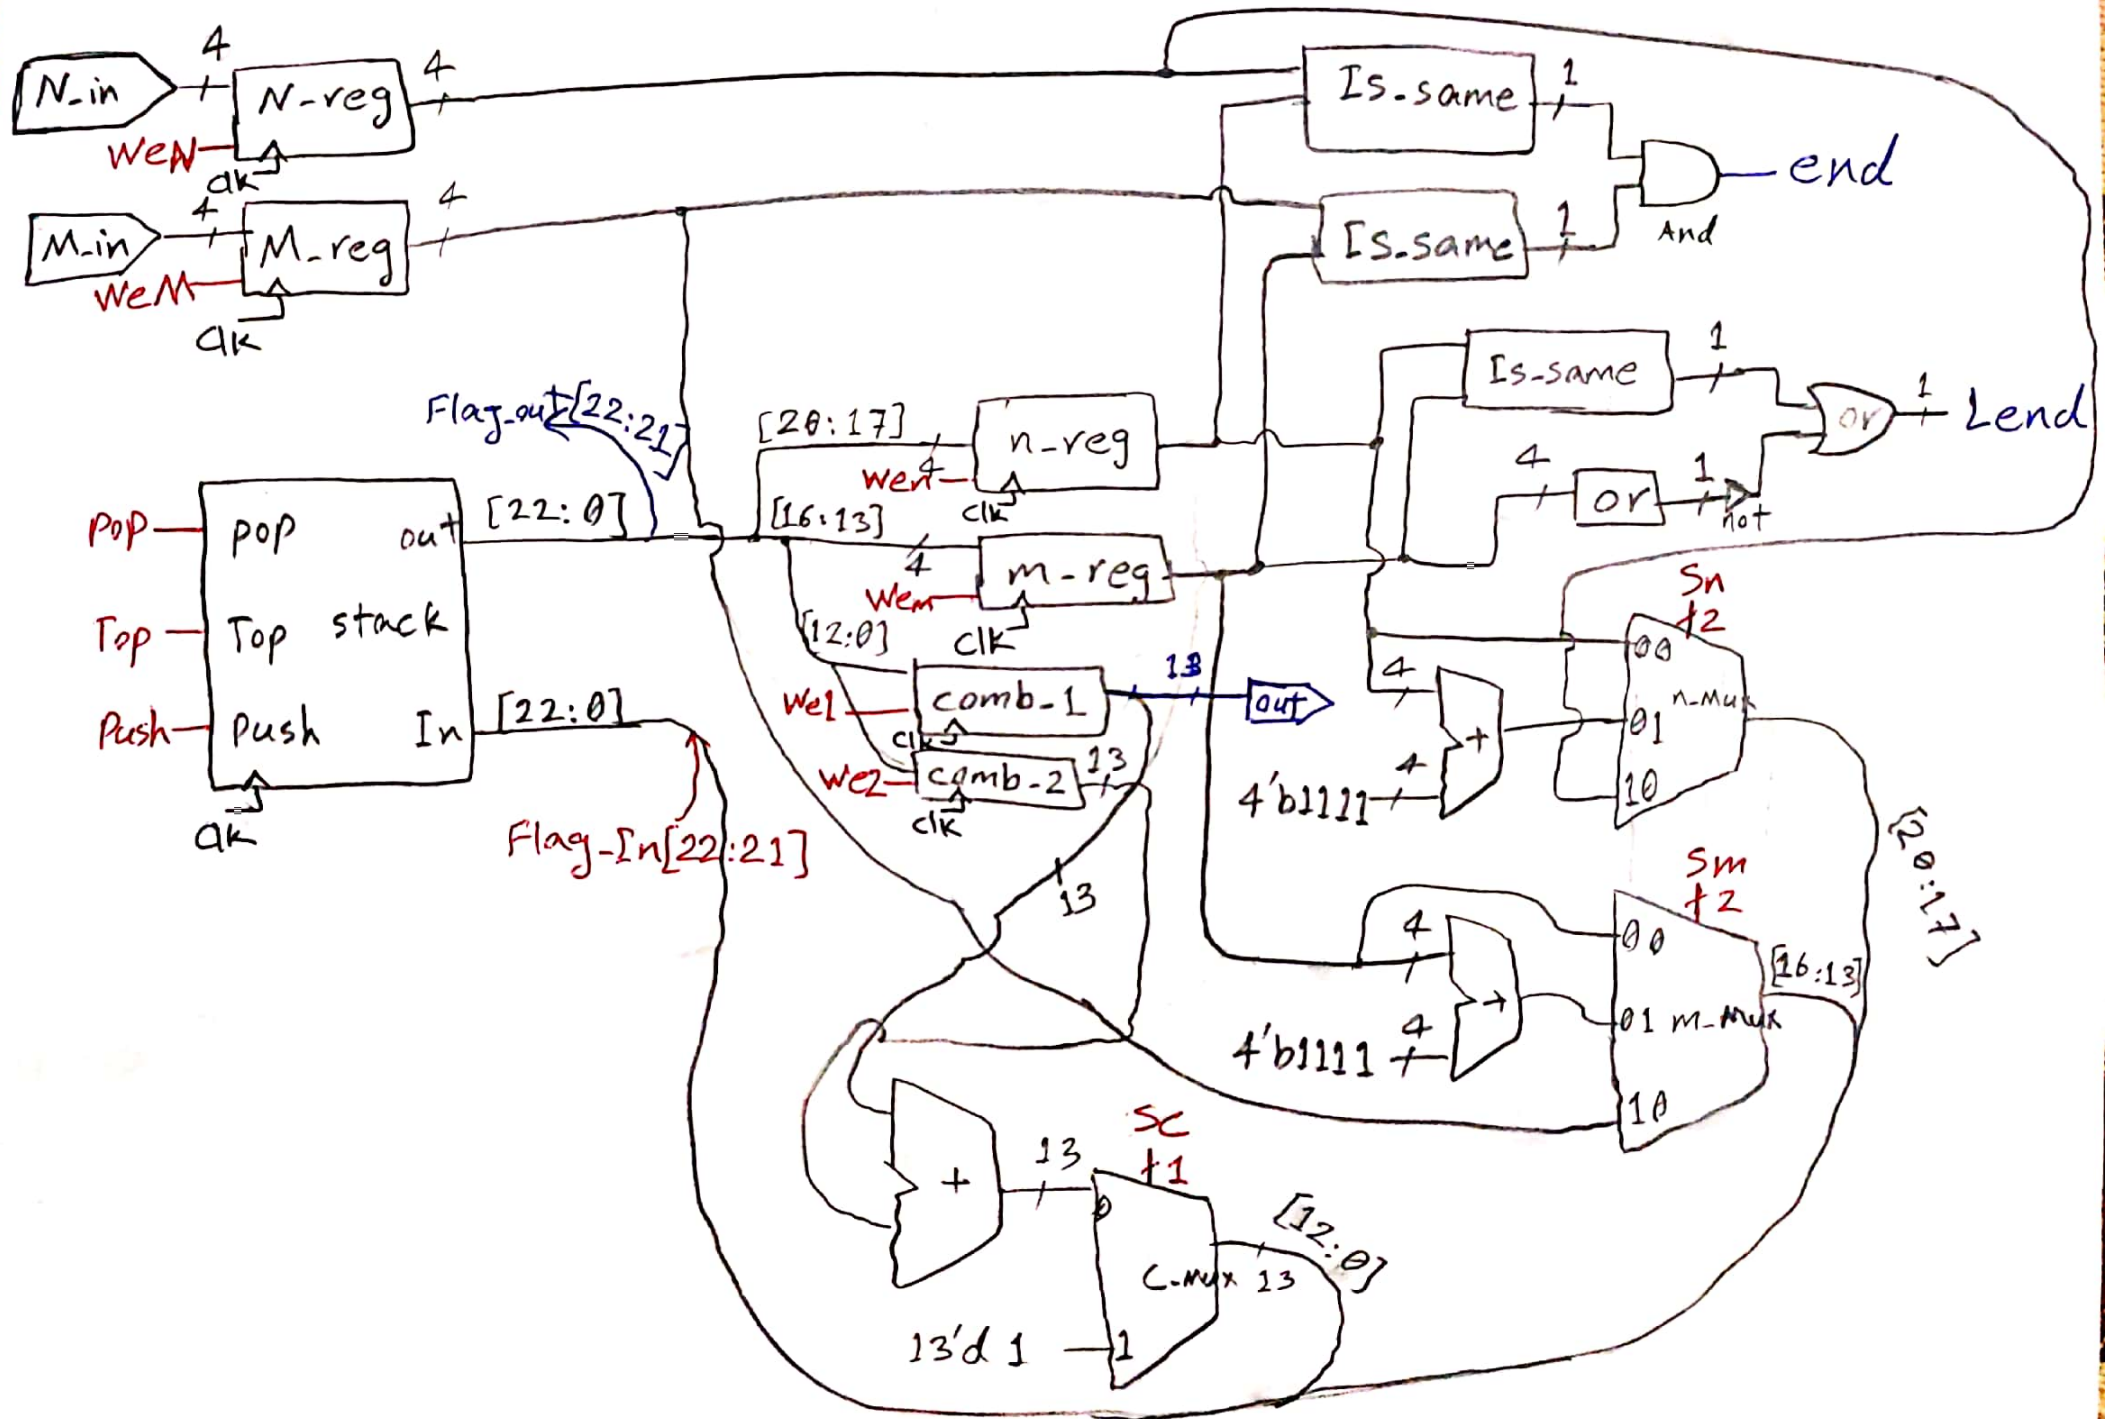 N_in
4
N-reg
4
WeN
clk
M_in
4
M_reg
4
WeM
clk
Is_same
1
Is_same
1
And
end
Is_same
1
or
1
Lend
4
or
1
not
Flag_out[22:21]
[20:17]
4
n_reg
Wen
clk
[16:13]
4
m_reg
Wem
clk
[12:0]
We1
comb_1
clk
13
out
We2
comb_2
clk
13
13
Pop
pop
out
[22:0]
Top
Top
stack
Push
push
In
[22:0]
clk
Flag_In[22:21]
Sn
2
00
n_mux
01
10
4
4
4'b1111
+
[20:17]
Sm
2
00
01
m_mux
10
[16:13]
4
4
4'b1111
+
+
13
Sc
1
0
C_mux
13
[12:0]
13'd 1
1